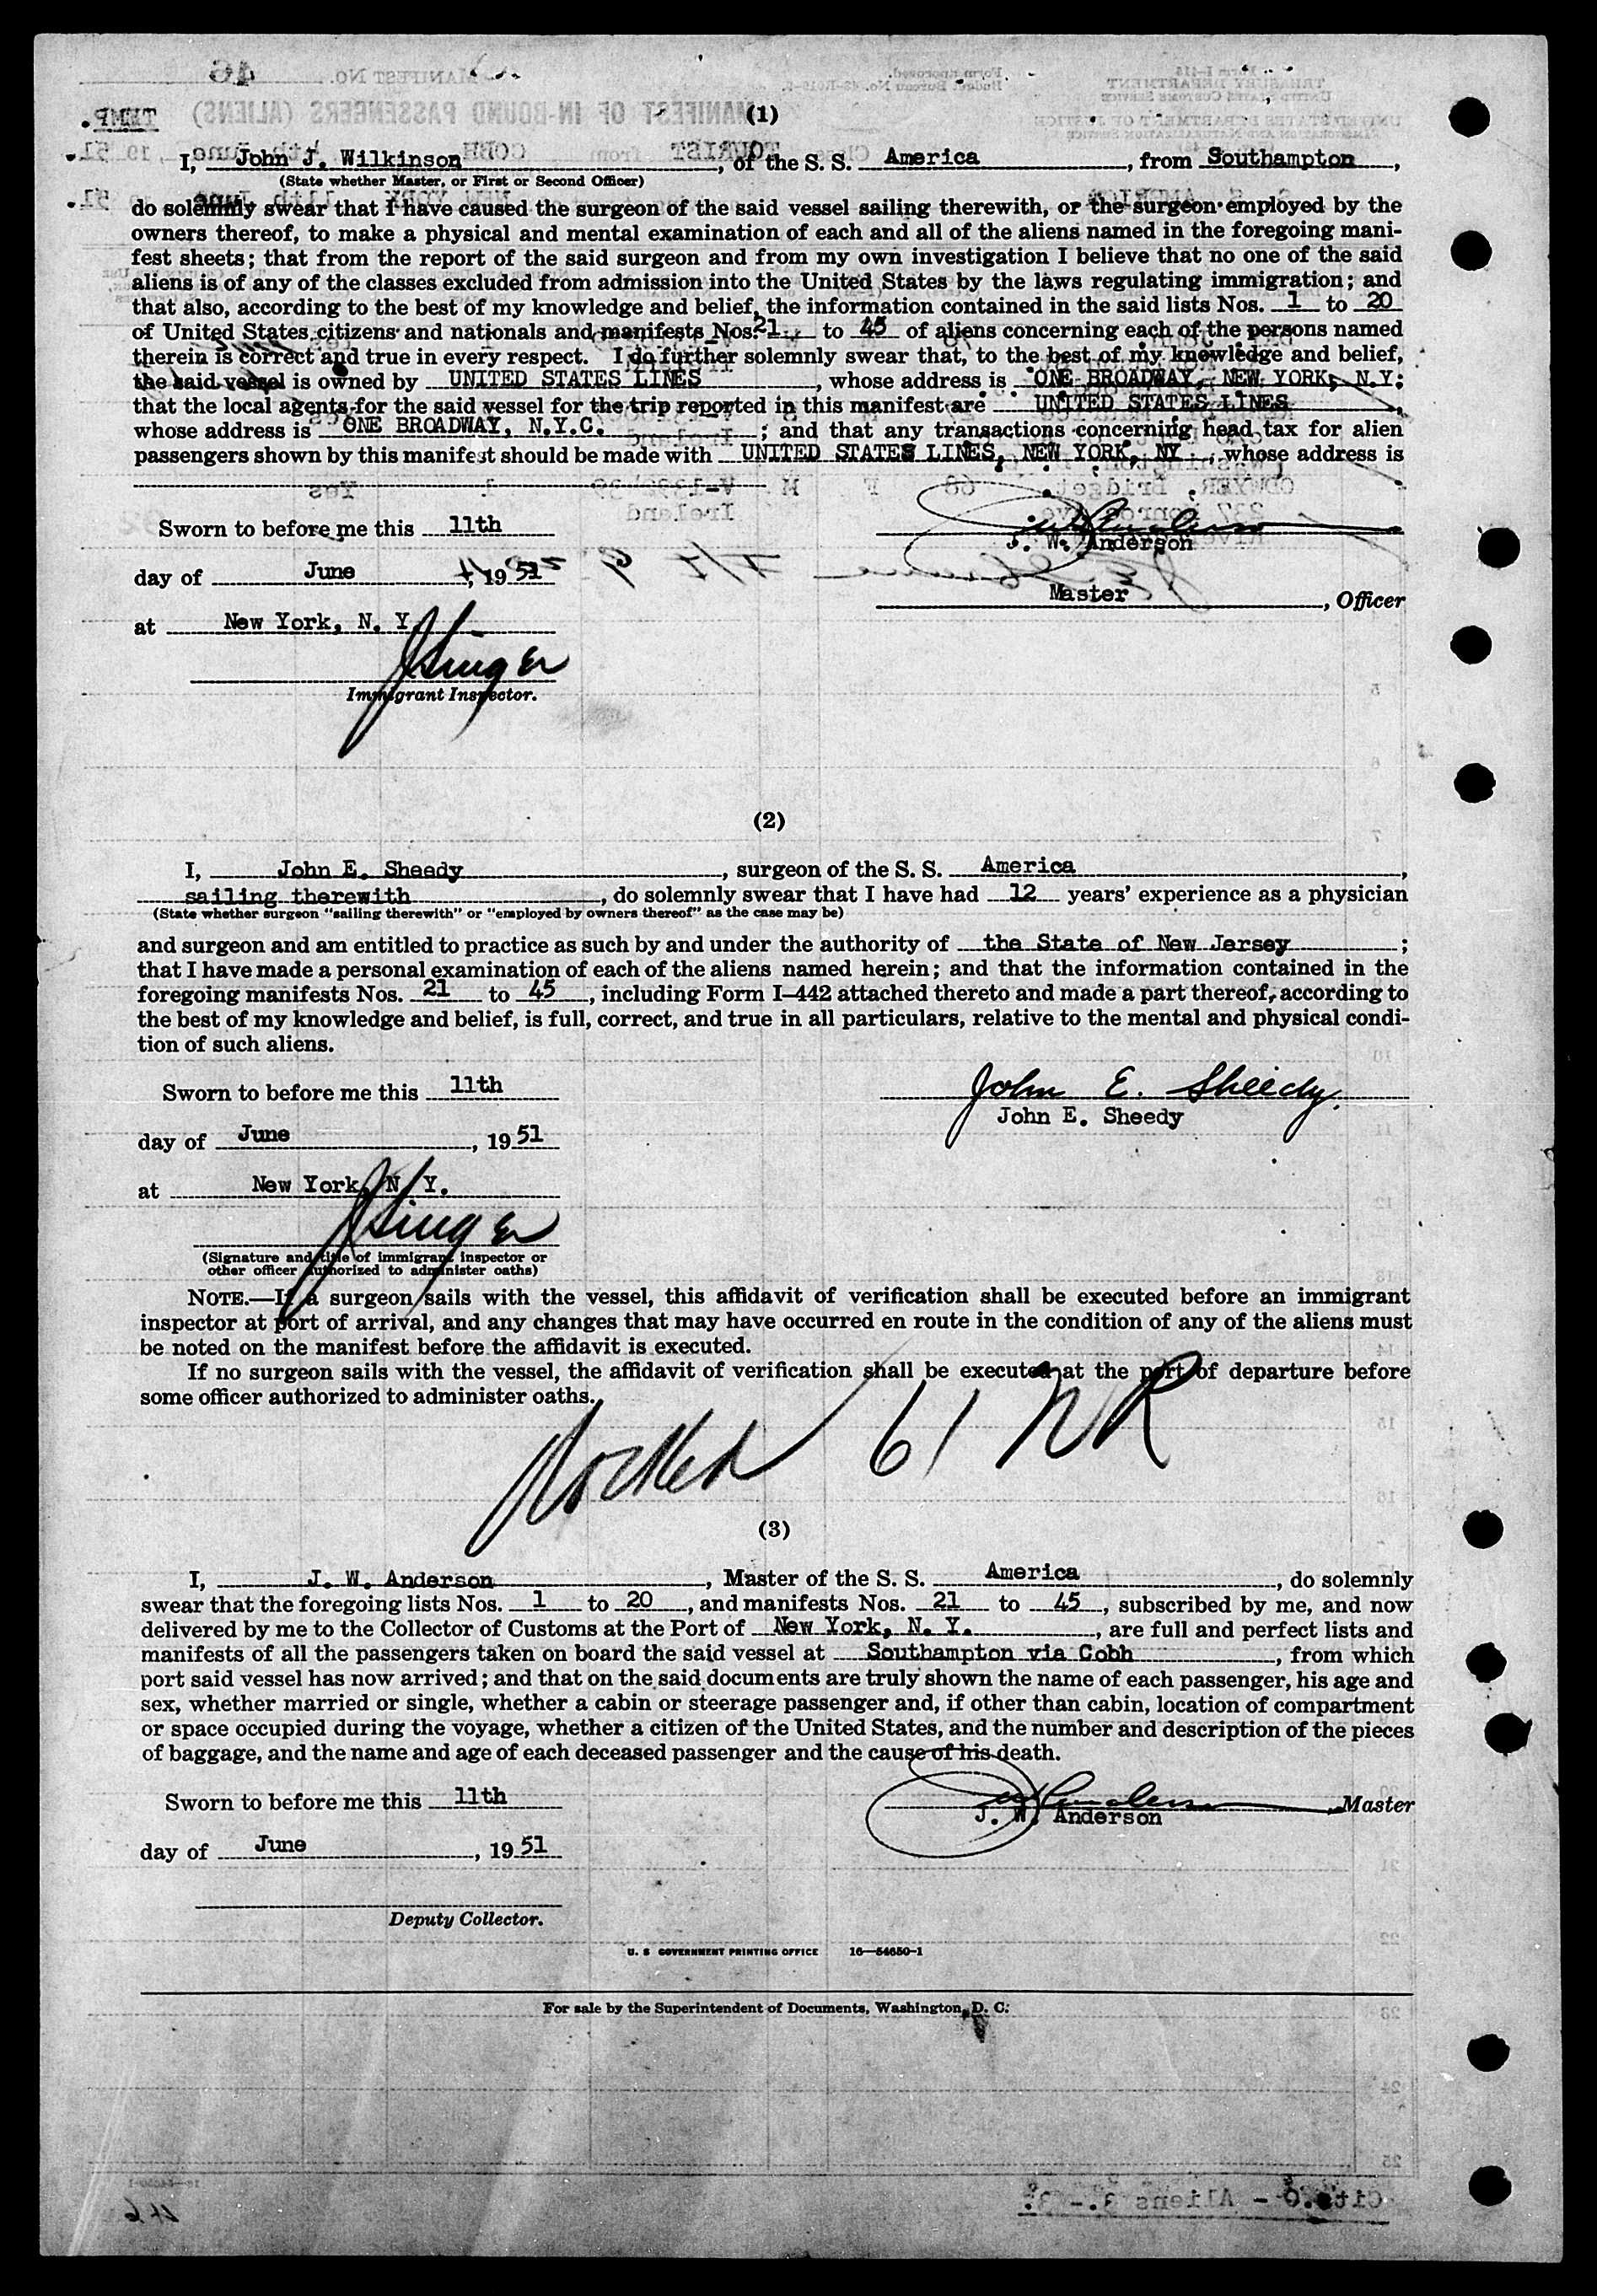 (1)
I, John J. Wilkinson, of the S. S. America, from Southampton,
(State whether Master, or First or Second Officer)
do solemnly swear that I have caused the surgeon of the said vessel sailing therewith, or the surgeon employed by the
owners thereof, to make a physical and mental examination of each and all of the aliens named in the foregoing mani-
fest sheets; that from the report of the said surgeon and from my own investigation I believe that no one of the said
aliens is of any of the classes excluded from admission into the United States by the laws regulating immigration; and
that also, according to the best of my knowledge and belief, the information contained in the said lists Nos. 1 to 20
of United States citizens and nationals and manifests Nos. 21 to 45 of aliens concerning each of the persons named
therein is correct and true in every respect. I do further solemnly swear that, to the best of my knowledge and belief,
the said vessel is owned by UNITED STATES LINES, whose address is ONE BROADWAY, NEW YORK, N.Y;
that the local agents for the said vessel for the trip reported in this manifest are UNITED STATES LINES,
whose address is ONE BROADWAY, N.Y.C.; and that any transactions concerning head tax for alien
passengers shown by this manifest should be made with UNITED STATES LINES, NEW YORK, NY, whose address is
Sworn to before me this 11th
J. W. Anderson
day of June, 1951
Master, Officer
at New York, N. Y.
J Singer
Immigrant Inspector.
(2)
I, John E. Sheedy, surgeon of the S. S. America,
sailing therewith, do solemnly swear that I have had 12 years' experience as a physician
(State whether surgeon "sailing therewith" or "employed by owners thereof" as the case may be)
and surgeon and am entitled to practice as such by and under the authority of the State of New Jersey;
that I have made a personal examination of each of the aliens named herein; and that the information contained in the
foregoing manifests Nos. 21 to 45, including Form I-442 attached thereto and made a part thereof, according to
the best of my knowledge and belief, is full, correct, and true in all particulars, relative to the mental and physical condi-
tion of such aliens.
Sworn to before me this 11th
John E. Sheedy
John E. Sheedy
day of June, 1951
at New York, N. Y.
J Singer
(Signature and title of immigrant inspector or
other officer authorized to administer oaths)
NOTE.—If a surgeon sails with the vessel, this affidavit of verification shall be executed before an immigrant
inspector at port of arrival, and any changes that may have occurred en route in the condition of any of the aliens must
be noted on the manifest before the affidavit is executed.
If no surgeon sails with the vessel, the affidavit of verification shall be executed at the port of departure before
some officer authorized to administer oaths.
61 NR
(3)
I, J. W. Anderson, Master of the S. S. America, do solemnly
swear that the foregoing lists Nos. 1 to 20, and manifests Nos. 21 to 45, subscribed by me, and now
delivered by me to the Collector of Customs at the Port of New York, N. Y., are full and perfect lists and
manifests of all the passengers taken on board the said vessel at Southampton via Cobh, from which
port said vessel has now arrived; and that on the said documents are truly shown the name of each passenger, his age and
sex, whether married or single, whether a cabin or steerage passenger and, if other than cabin, location of compartment
or space occupied during the voyage, whether a citizen of the United States, and the number and description of the pieces
of baggage, and the name and age of each deceased passenger and the cause of his death.
Sworn to before me this 11th
Master
J. W. Anderson
day of June, 1951
Deputy Collector.
U. S GOVERNMENT PRINTING OFFICE 16—54650-1
For sale by the Superintendent of Documents, Washington, D. C.